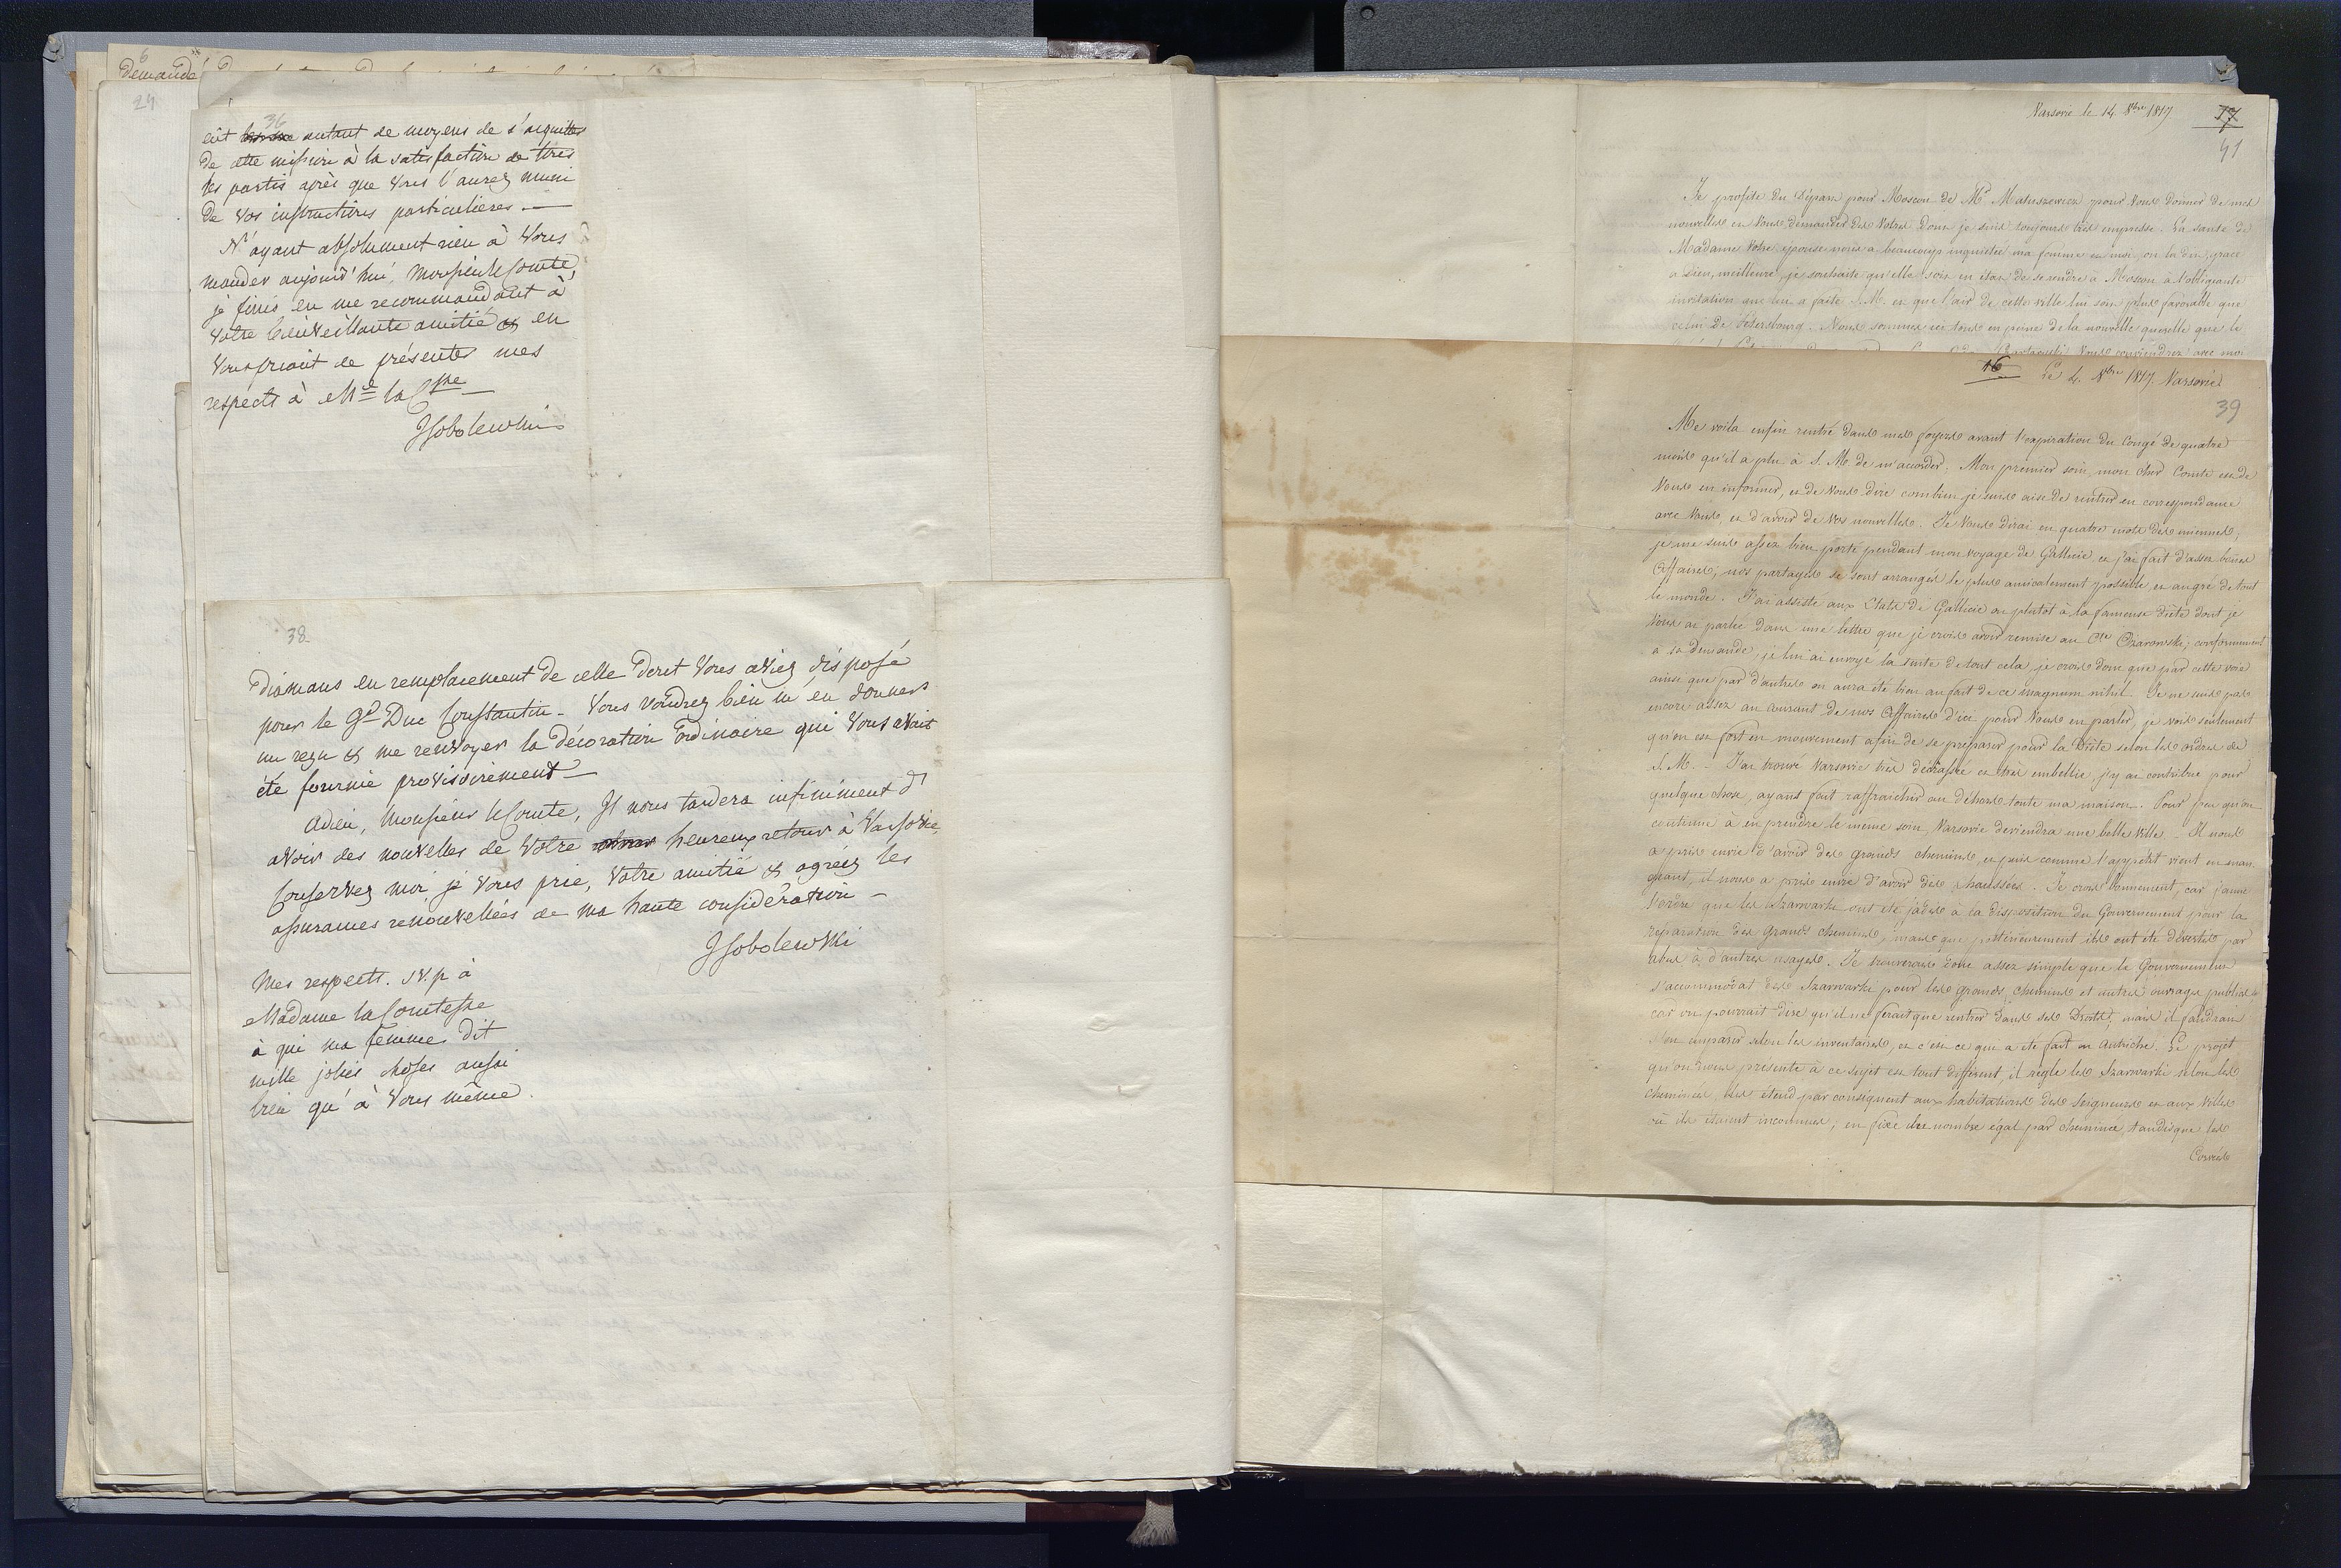 6
demandé
24
36
eut autant de moyens de s'acquitter
de cette mission à la satisfaction de tous
les partis après que Vous l'aurez muni
de Vos instructions particulières. —
N'ayant absolument rien à Vous
mander aujourd'hui, Monsieur le Comte,
je finis en me recommandant à
Votre bienveillante amitié & en
Vous priant de présenter mes
respects à Md la Csse —
JSobolewski
38
diamans en remplacement de celle dont Vous aviez disposé
pour le Gd Duc Constantin — Vous voudrez bien m'en donner
un reçu & me renvoyer la décoration ordinaire qui Vous avait
été fournie provisoirement —
Adieu, Monsieur le Comte, Il nous tardera infiniment d'
avoir des nouvelles de Votre heureux retour à Varsovie,
Conservez moi, je Vous prie, Votre amitié & agréez les
assurances renouvellées de ma haute considération —
JSobolewski
Mes respects. s.v.p à
Madame la Comtesse
à qui ma femme dit
mille jolies choses aussi
bien qu'à Vous même.
Varsovie le 14 8bre 1817
17
41
Je profite du départ pour Moscou de Mr Matuszewicz pour Vous donner de mes
nouvelles et Vous demander des Votres dont je suis toujours très empressé. La santé de
Madame Votre epouse nous a beaucoup inquietés ma femme et moi, on la dit, grace
a Dieu, meilleure, je souhaite qu'elle soit en état de se rendre a Moscou à l'obligeante
invitation que lui a faite S.M. et que l'air de cette ville lui soit plus favorable que
celui de Petersbourg. Nous sommes ici tous en peine de la nouvelle querelle que le
Vous conviendrez avec moi
16
Le 4. 8bre 1817. Varsovie
39
Me voila enfin rentré dans mes foyers avant l'expiration du Congé de quatre
mois qu'il a plu à S. M. de m'accorder. Mon premier soin, mon cher Comte est de
Vous en informer, et de Vous dire combien je suis aise de rentrer en correspondance
avec Vous, et d'avoir de Vos nouvelles. Je Vous dirai en quatre mots des miennes,
je me suis assez bien porté pendant mon voyage de Gallicie et j'ai fait d'assez bonnes
affaires, nos partages se sont arrangés le plus amicalement possible et au gré de tout
le monde. J'ai assisté aux Etats de Gallicie ou plutot à la fameuse diète dont je
Vous ai parlée dans une lettre que je crois avoir remise au Cte Ozarowski, conformement
a sa demande, je lui ai envoyé la suite de tout cela, je crois donc que par cette voie
ainsi que par d'autres on aura été bien au fait de ce magnum nihil. Je ne suis pas
encore assez au courant de nos affaires d'ici pour Vous en parler, je vois seulement
qu'on est fort en mouvement afin de se préparer pour la Diète selon les ordres de
S. M. — J'ai trouvé Varsovie très décrassée et très embellie, j'y ai contribué pour
quelque chose, ayant fait raffraichir au déhors toute ma maison. Pour peu qu'on
continue à en prendre le meme soin, Varsovie deviendra une belle Ville. — Il nous
a pris envie d'avoir des grands chemins, et puis comme l'appétit vient en man-
geant, il nous a pris envie d'avoir des chaussées. Je crois bonnement, car j'aime
l'ordre que les Szarwarki ont été jadis à la disposition du Gouvernement pour la
réparation des grands chemins, mais que postérieurement ils ont été divertis par
abus à d'autres usages. Je trouverais donc assez simple que le Gouvernement
s'accommodat des Szarwarki pour les grands chemins et autres ouvrages publics
car on pourrait dire qu'il ne ferait que rentrer dans ses Droits, mais il faudrait
s'en emparer selon les inventaires, et c'est ce que a été fait en Autriche. Le projet
qu'on nous présente à ce sujet est tout different, il règle les Szarwarki selon les
cheminées, les étend par consequent aux habitations des Seigneurs et aux Villes
où ils étaient inconnus, en fixe un nombre egal par cheminée, tandis que les